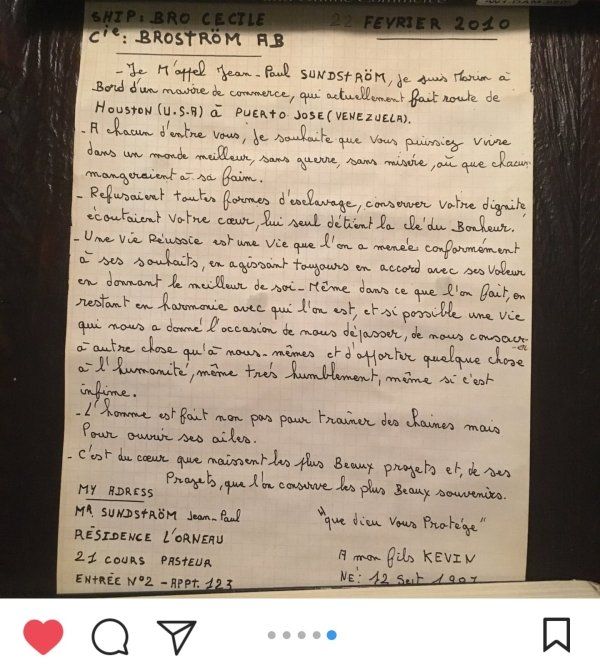 SHIP: BRO CECILE 22 FEVRIER 2010
Cie: BROSTRÖM AB
- Je M'appel Jean-Paul SUNDSTRÖM, je suis Marin à
Bord d'un navire de commerce, qui actuellement fait route de
HOUSTON (U.S.A) à PUERTO JOSE (VENEZUELA).
- A chacun d'entre vous, je souhaite que vous puissiez vivre
dans un monde meilleur, sans guerre, sans misère, où que chacun
mangeraient à sa faim.
- Refusaient toutes formes d'esclavage, conserver votre dignité,
écoutaient votre cœur, lui seul détient la clé du Bonheur.
- Une vie Réussie est une vie que l'on a menée conformément
à ses souhaits, en agissant toujours en accord avec ses valeur
en donnant le meilleur de soi-Même dans ce que l'on fait, en
restant en harmonie avec qui l'on est, et si possible une vie
qui nous a donné l'occasion de nous dépasser, de nous consacrer
à autre chose qu'à nous-mêmes et d'apporter quelque chose
à l'humanité, même très humblement, même si c'est
infime.
- L'homme est fait non pas pour traîner des chaines mais
Pour ouvrir ses ailes.
- C'est du cœur que naissent les plus Beaux projets et, de ses
Projets, que l'on conserve les plus Beaux souvenirs.
MY ADRESS
MR. SUNDSTRÖM Jean-Paul
RÉSIDENCE L'ORNEAU
21 COURS PASTEUR
ENTRÉE N°2 - APPT. 123
"que dieu Vous Protége"
A mon fils KEVIN
NÉ: 12 Sept